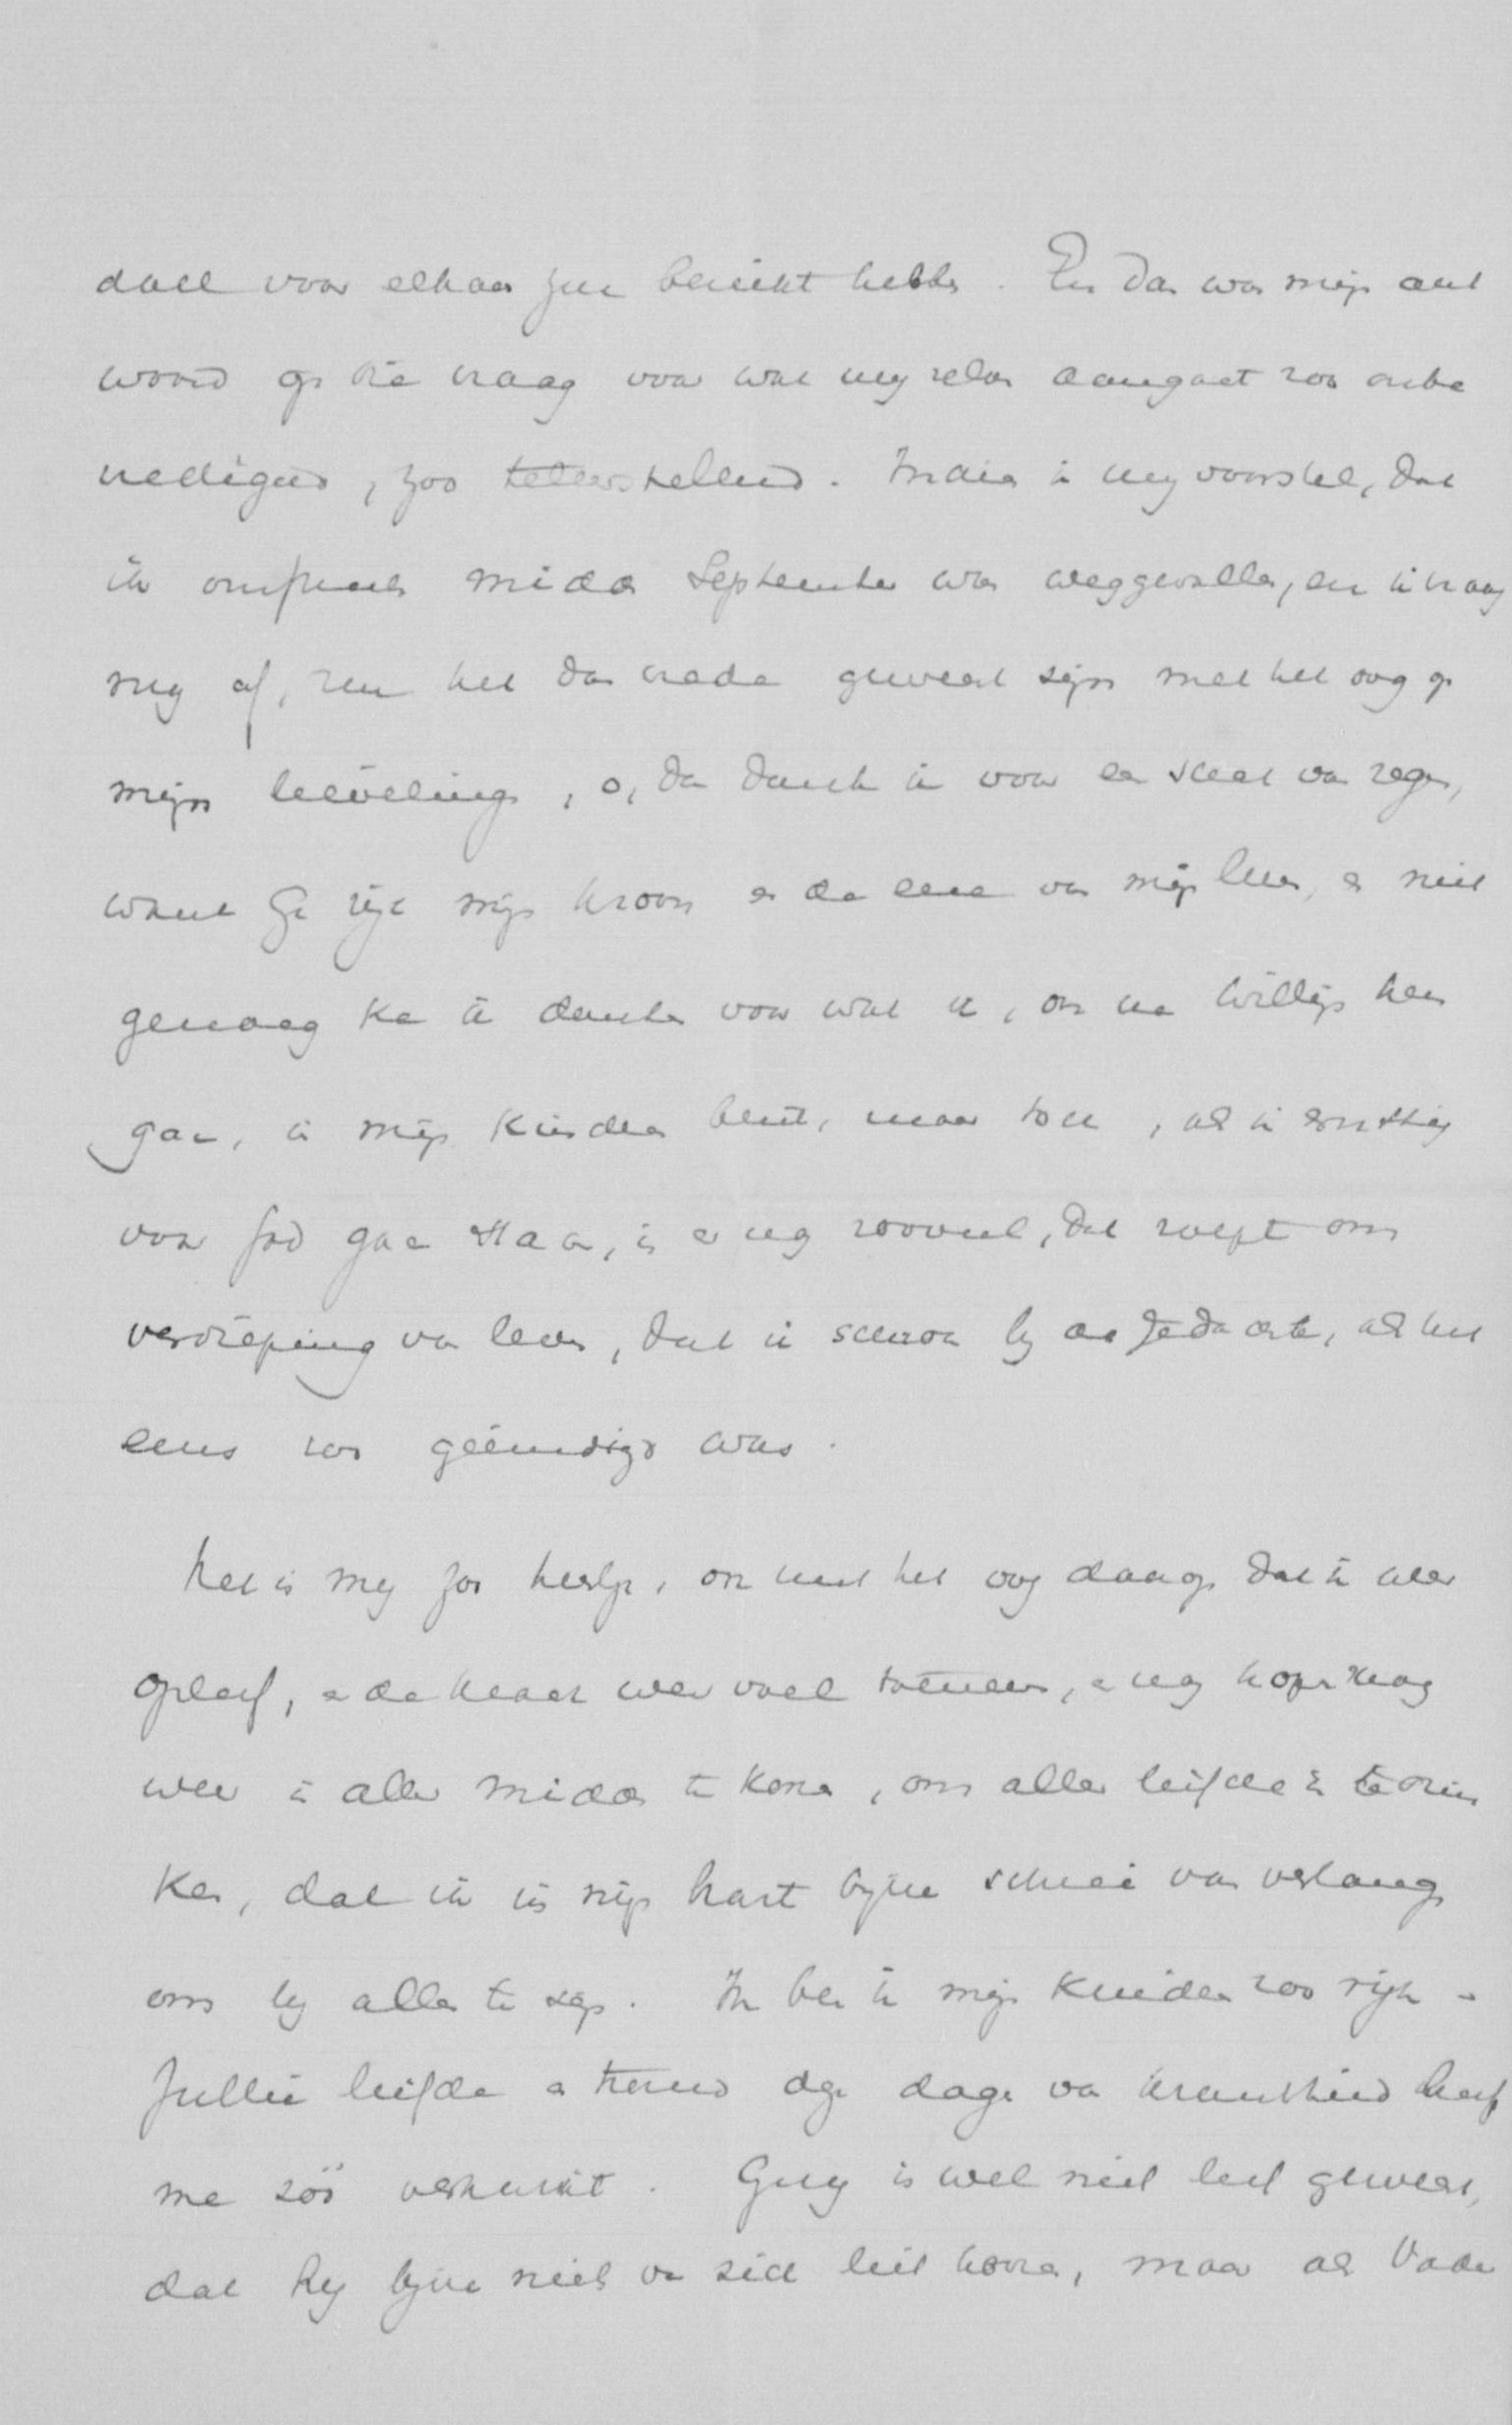 doel voor elkaar zou bereikt hebben. En dan was mijn ant
woord op die vraag voor wat mij zelven aangaat zoo onbe
vredigend, zoo teleurstellend. Indien ik mij voorstel, dat
ik omstreeks midden September was weggevallen, en ik vraag
mij af, zou het dan vrede geweest zijn met het oog op
mijn lievelingen, o, dan dank ik voor een schat van zegen,
want Ge zijt mijn kroon en de eere van mijn leven, en niet
genoeg kan ik danken voor wat ik, on
gaar, in mijn kinderen bezit, maar toch, als ik ernstig
voor God ga staan, is er nog zooveel, dat roept om
verdieping van leven, dat ik schroom bij de gedachte, als het
eens zoo geëindigd was.
Het is mij zoo heerlijk, om met het oog daarop dat ik weer
opleef, en de kracht weer voel toenemen, en nog hopen mag
weer in aller midden te komen, om aller liefde in te drin
ken, dat ik in mijn hart bijna schrei van verlangen
om bij allen te zijn. Ik ben in mijn kinderen zoo rijk -
Jullie liefde en trouw deze dagen van krankheid heeft
me zóó verkwikt. Guy is wel niet lief geweest,
dat hij bijna niets van zich liet hooren, maar als Vader